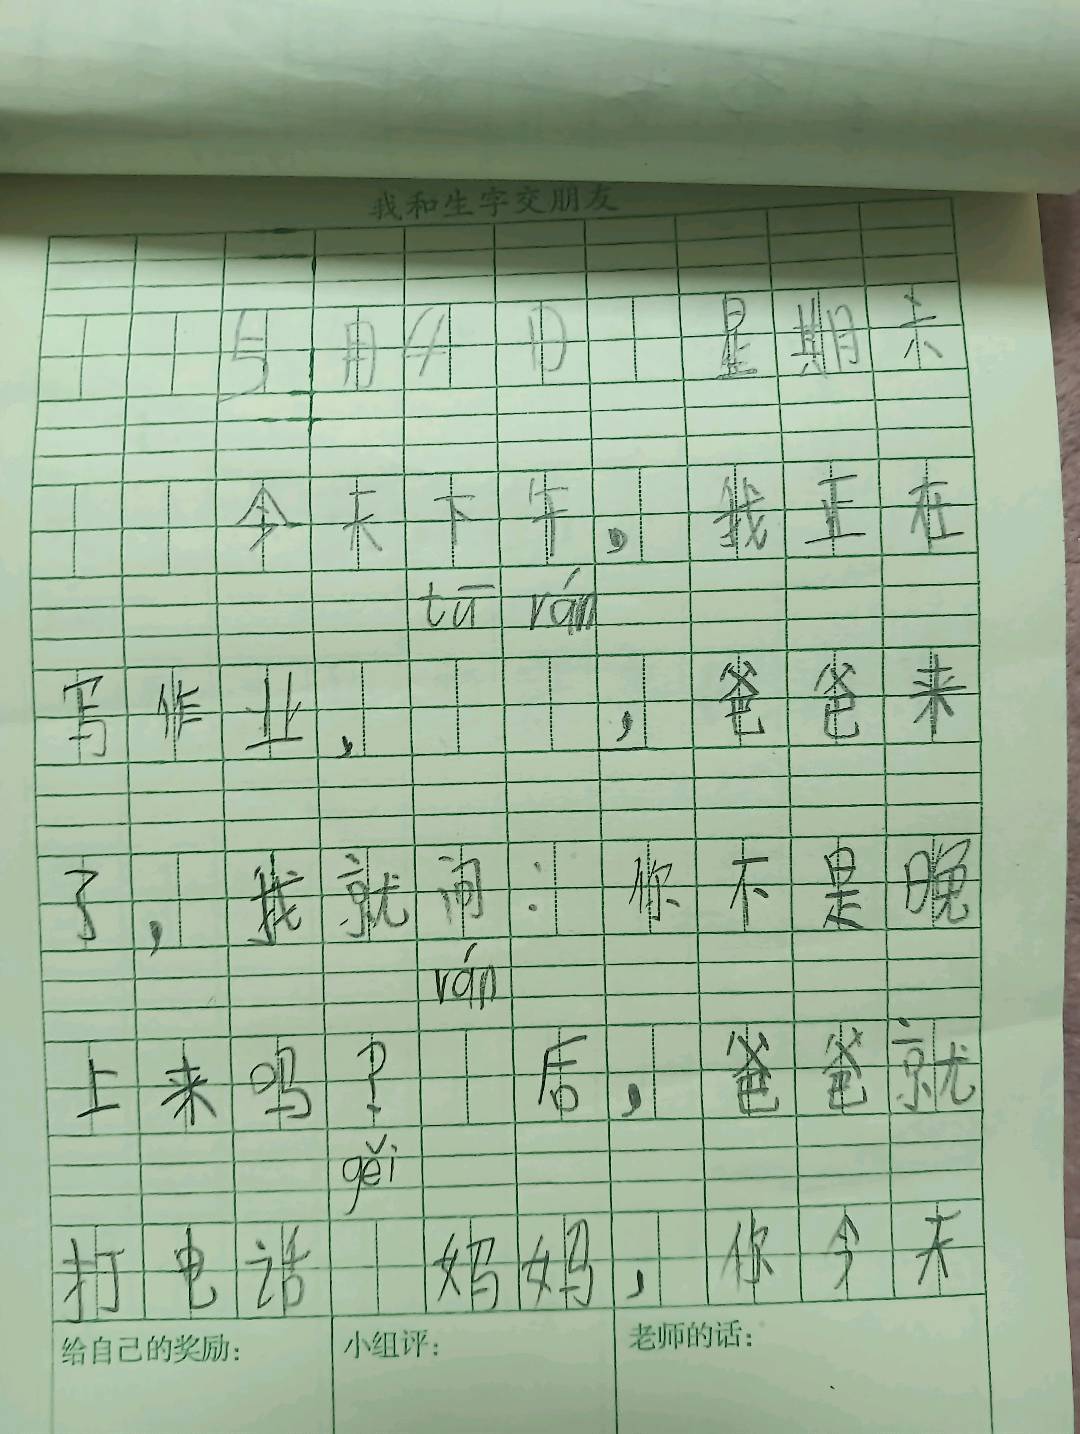 我和生字交朋友
5月4日 星期六
今天下午，我正在
tū rán
写作业， ，爸爸来
了，我就闹：你不是晚
rán
上来吗？ 后，爸爸就
gěi
打电话 妈妈，你今天
给自己的奖励： 小组评： 老师的话：